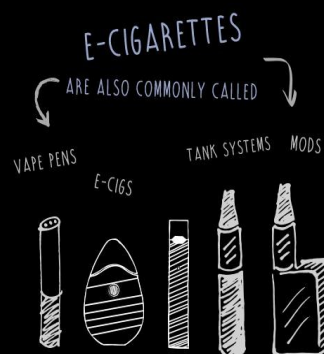 E-CIGARETTES
ARE ALSO COMMONLY CALLED
VAPE PENS
E-CIGS
TANK SYSTEMS
MODS